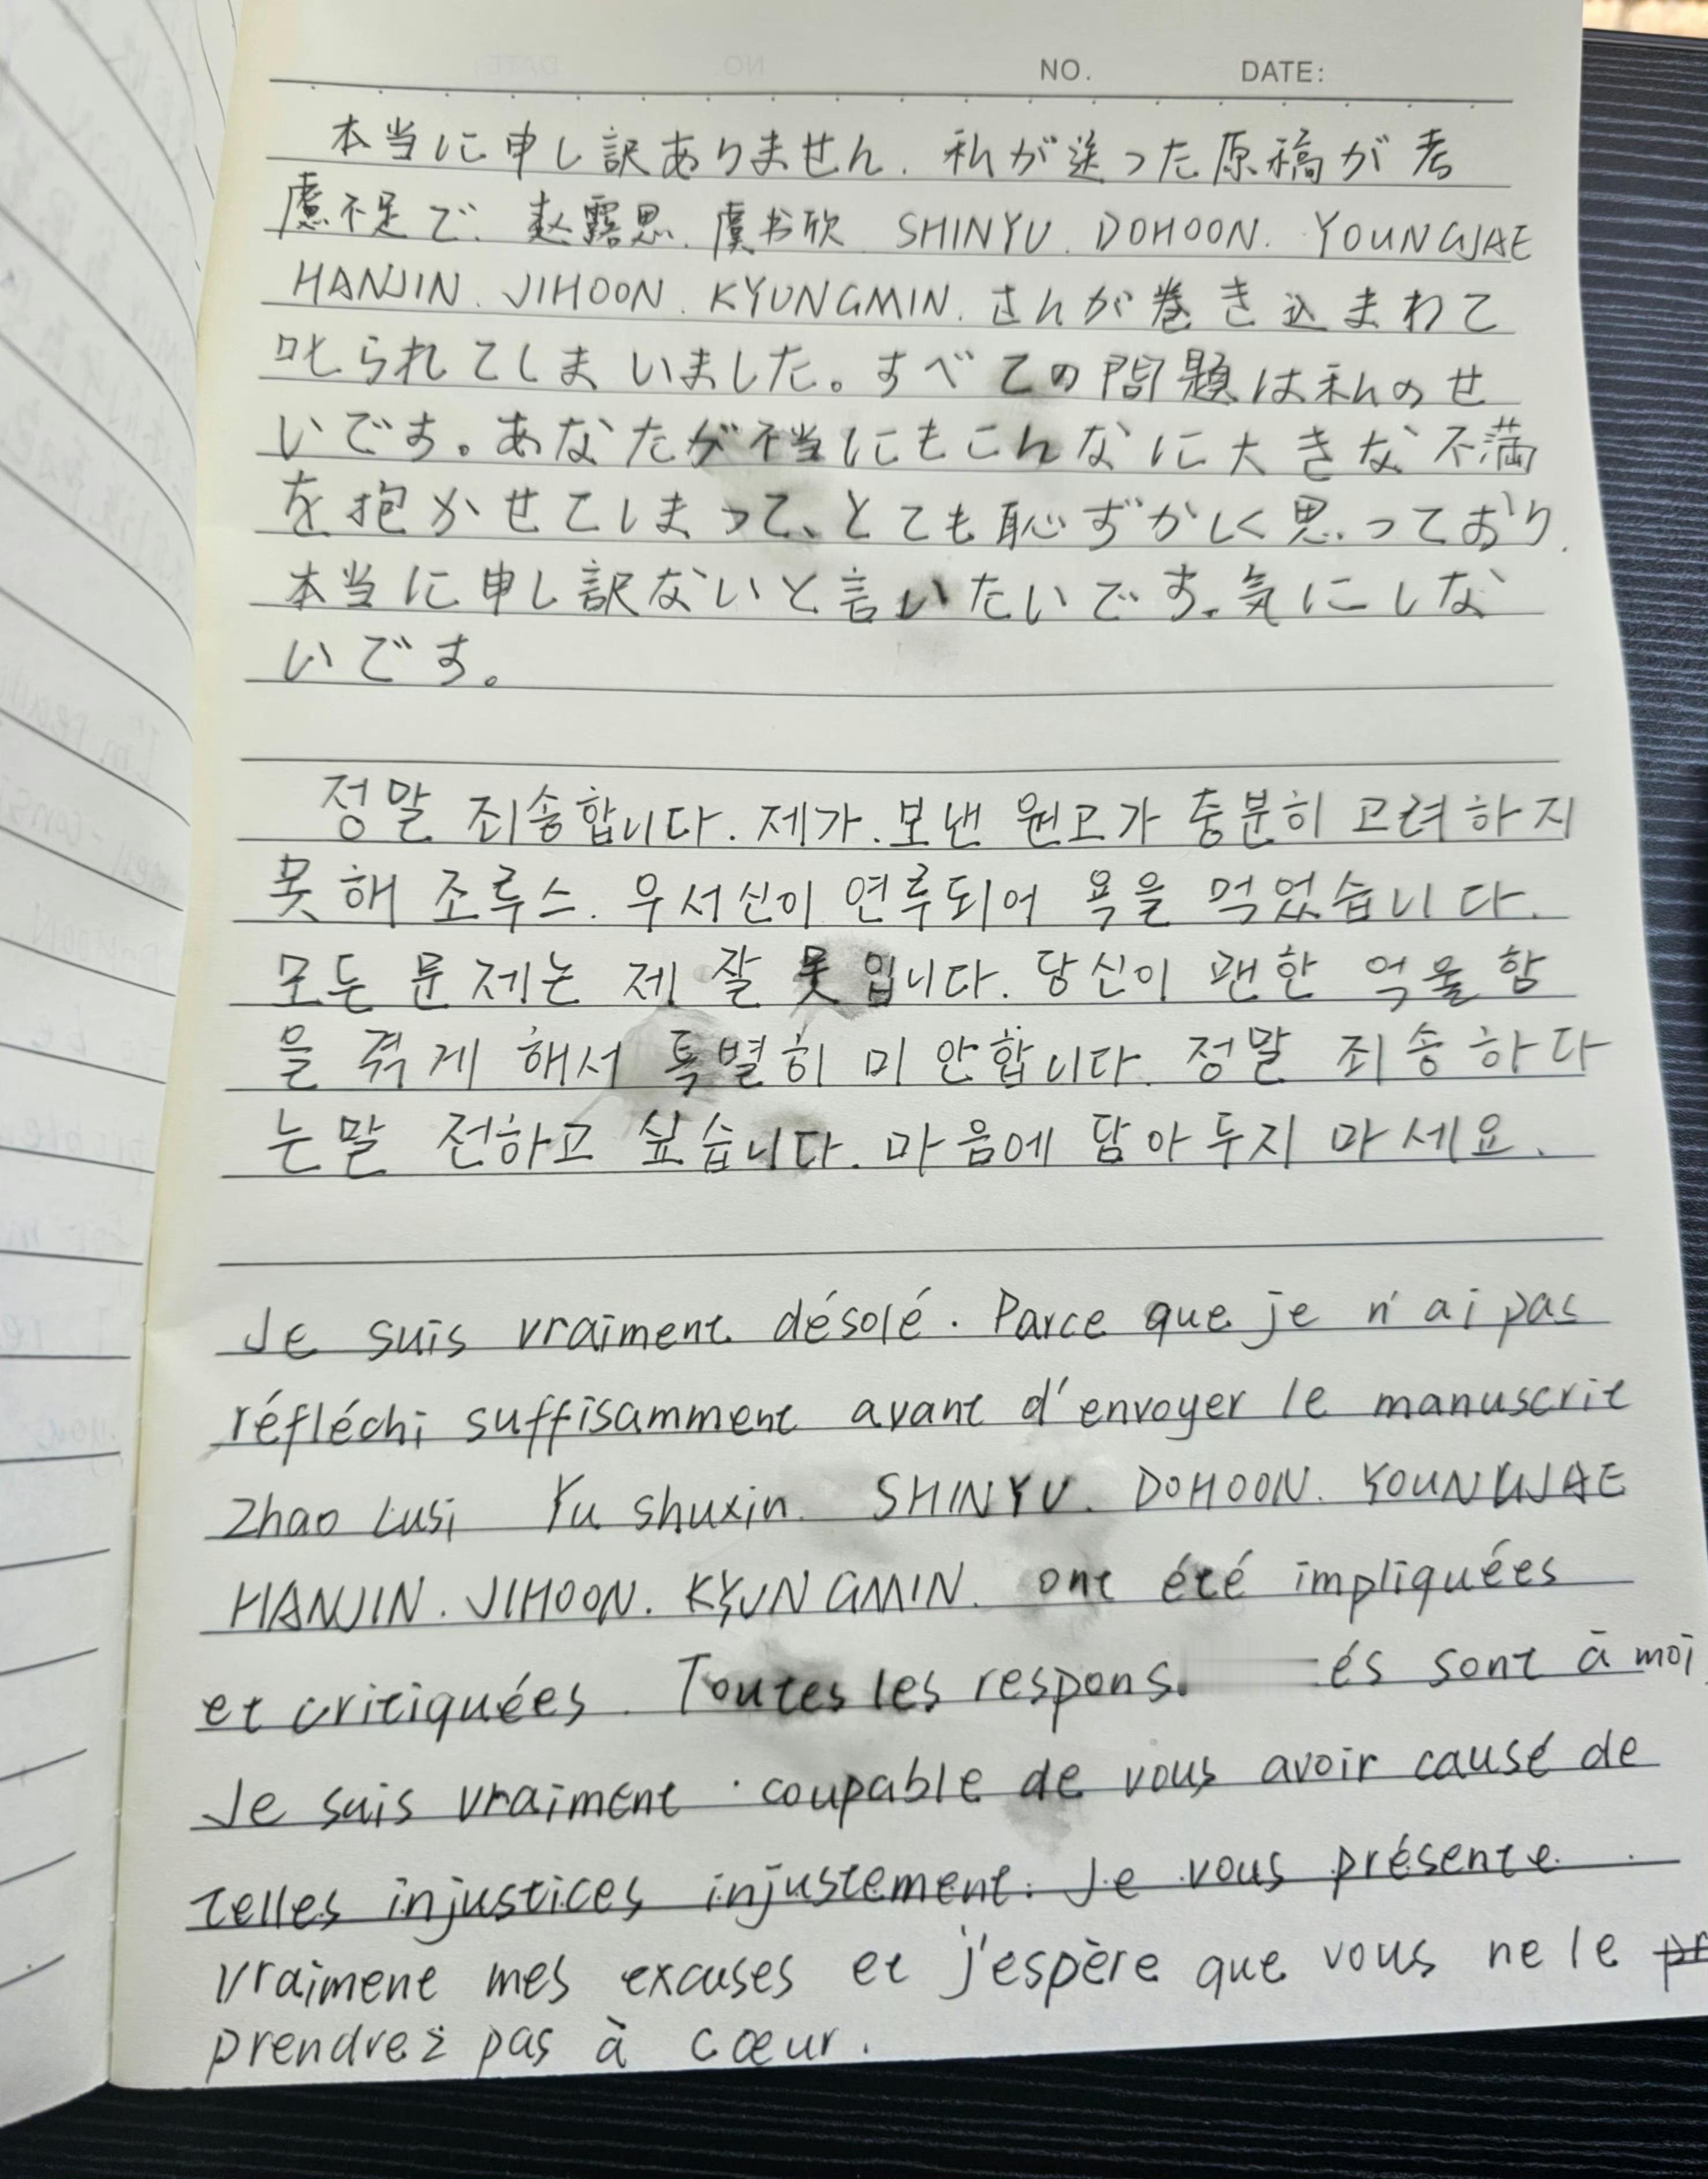 NO. DATE:
本当に申し訳ありません. 私が送った原稿が考
慮不足で. 赵露思. 虞书欣 SHINYU. DOHOON. YOUNGJAE
HANJIN. JIHOON. KYUNGMIN. さんが巻き込まわて
叱られてしまいました。すべての問題は私のせ
いです。あなたが不当にもこんなに大きな不満
を抱かせてしまって、とても恥ずかしく思っており.
本当に申し訳ないと言いたいです。気にしな
いです。
정말 죄송합니다. 제가. 보낸 원고가 충분히 고려하지
못해 조루스. 우서신이 연루되어 욕을 먹었습니다.
모든 문제는 제 잘못입니다. 당신이 괜한 억울함
을 겪게 해서 특별히 미안합니다. 정말 죄송하다
는말 전하고 싶습니다. 마음에 담아두지 마세요.
Je suis vraiment désolé. Parce que je n'ai pas
réfléchi suffisamment avant d'envoyer le manuscrit
Zhao Lusi Yu shuxin. SHINYU. DOHOON. YOUNGJAE
HANJIN. JIHOON. KYUNGMIN. ont été impliquées
et critiquées. Toutes les respons és sont à moi.
Je suis vraiment coupable de vous avoir causé de
telles injustices injustement. Je vous présente
vraiment mes excuses et j'espère que vous ne le
prendrez pas à cœur.